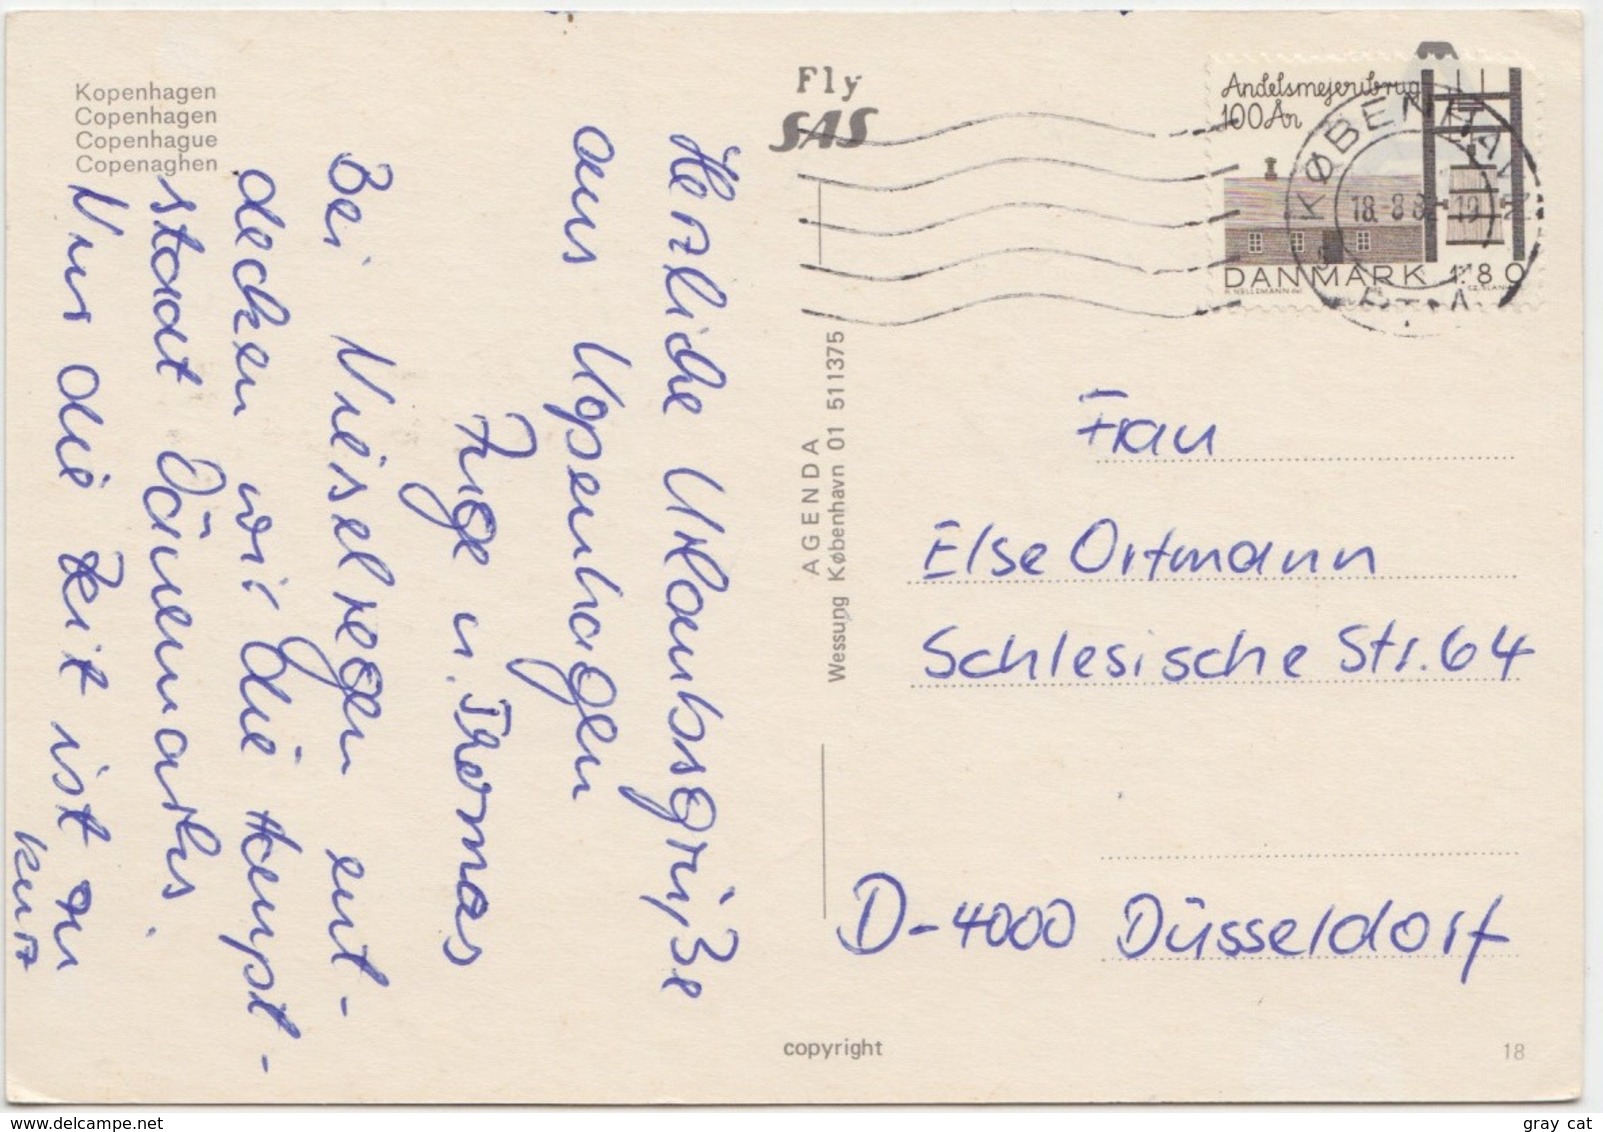 Kopenhagen
Copenhagen
Copenhague
Copenaghen
Herzliche Urlaubsgrüße
aus Kopenhagen
Inge u. Thomas
Bei Nieselregen ent-
decken wir die Haupt-
stadt Dänemarks.
Nur die Zeit ist zu
kurz
Fly
SAS
Andelsmejeribrug
100 År
DANMARK 180
KØBENHAVN
18.-8.8
AGENDA
Wessung København 01 511375
Frau
Else Ortmann
Schlesische Str. 64
D-4000 Düsseldorf
copyright
18
delcampe.net
gray cat